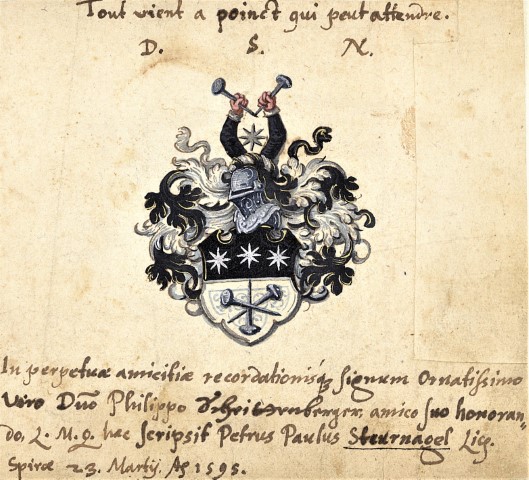 Tout vient a poinct qui peut attendre.
D. S. N.
In perpetuæ amicitiæ recordationisq́; signum Ornatissimo
Viro Dño Philippo amico suo honoran=
do, L. M. q. hæc scripsit Petrus Paulus Steurnagel Lic.
Spiræ 23. Martij. Aº 1595.